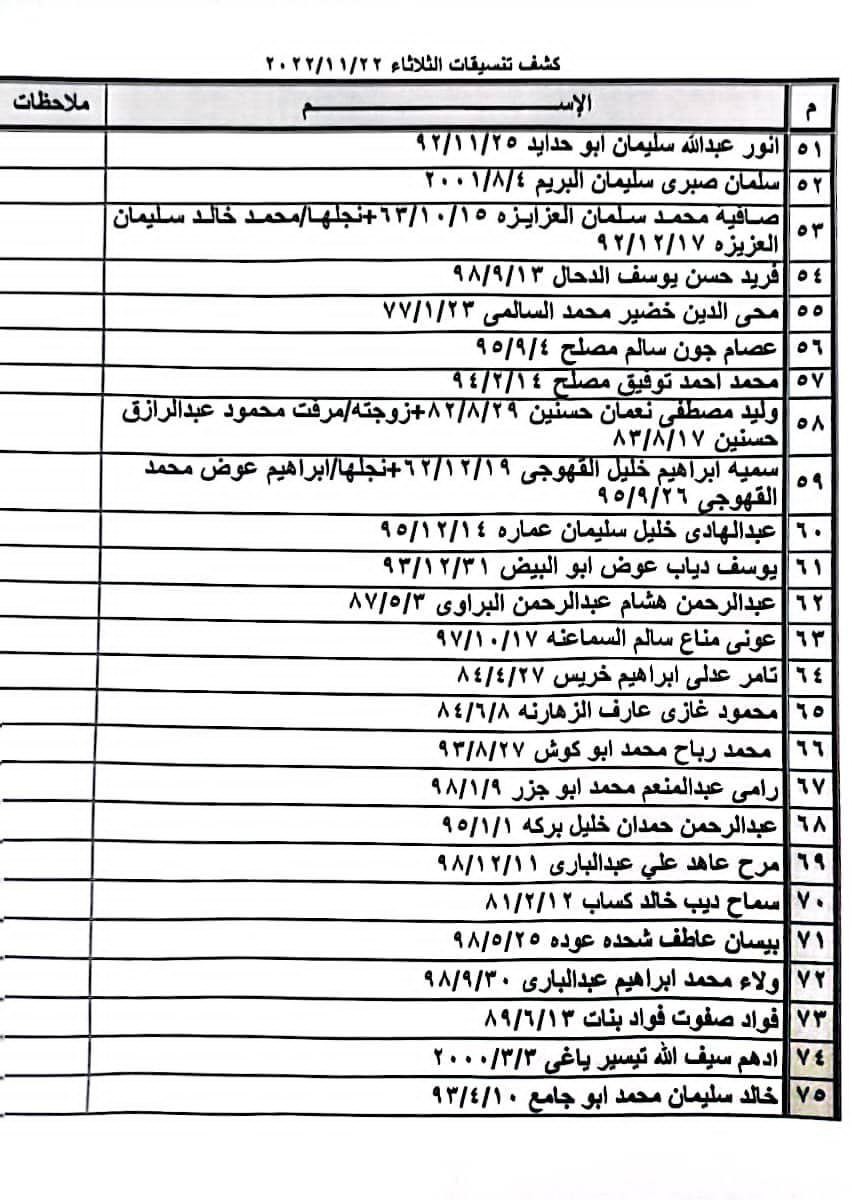 كشف تنسيقات الثلاثاء ٢٠٢٢/١١/٢٢
م الإســـــــــــــم ملاحظات
٥١ انور عبدالله سليمان ابو حدايد ٩٢/١١/٢٥
٥٢ سلمان صبرى سليمان البريم ٢٠٠١/٨/٤
٥٣ صافية محمد سلمان العزايزه ٦٣/١٠/١٥+نجلها/محمد خالد سليمان
العزيزه ٩٢/١٢/١٧
٥٤ فريد حسن يوسف الدحال ٩٨/٩/١٣
٥٥ محى الدين خضير محمد السالمى ٧٧/١/٢٣
٥٦ عصام جون سالم مصلح ٩٥/٩/٤
٥٧ محمد احمد توفيق مصلح ٩٤/٢/١٤
٥٨ وليد مصطفى نعمان حسنين ٨٢/٨/٢٩+زوجته/مرفت محمود عبدالرازق
حسنين ٨٣/٨/١٧
٥٩ سميه ابراهيم خليل القهوجى ٦٢/١٢/١٩+نجلها/ابراهيم عوض محمد
القهوجى ٩٥/٩/٢٦
٦٠ عبدالهادى خليل سليمان عماره ٩٥/١٢/١٤
٦١ يوسف دياب عوض ابو البيض ٩٣/١٢/٣١
٦٢ عبدالرحمن هشام عبدالرحمن البراوى ٨٧/٥/٣
٦٣ عونى مناع سالم السماعنه ٩٧/١٠/١٧
٦٤ تامر عدلى ابراهيم خريس ٨٤/٤/٢٧
٦٥ محمود غازى عارف الزهارنه ٨٤/٦/٨
٦٦ محمد رباح محمد ابو كوش ٩٣/٨/٢٧
٦٧ رامى عبدالمنعم محمد ابو جزر ٩٨/١/٩
٦٨ عبدالرحمن حمدان خليل بركه ٩٥/١/١
٦٩ مرح عاهد علي عبدالبارى ٩٨/١٢/١١
٧٠ سماح ديب خالد كساب ٨١/٢/١٢
٧١ بيسان عاطف شحده عوده ٩٨/٥/٢٥
٧٢ ولاء محمد ابراهيم عبدالبارى ٩٨/٩/٣٠
٧٣ فواد صفوت فواد بنات ٨٩/٦/١٣
٧٤ ادهم سيف الله تيسير ياغى ٢٠٠٠/٣/٣
٧٥ خالد سليمان محمد ابو جامع ٩٣/٤/١٠